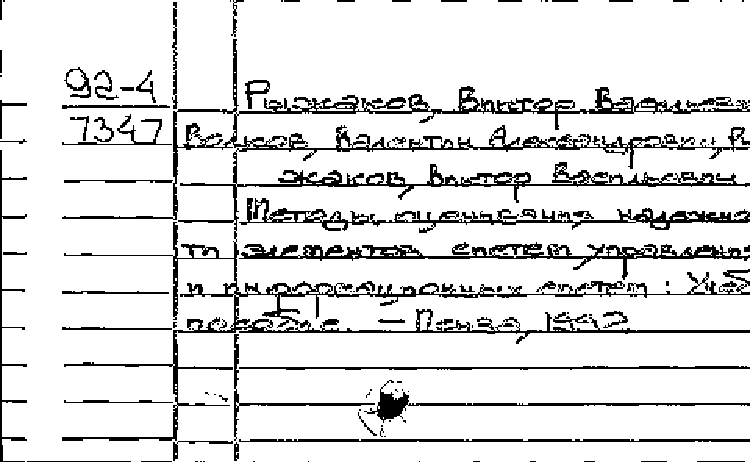 92-4
Рыжаков, Виктор Васильев
7347 Волков, Валентин Александрович, Р
жаков, Виктор Васильевич
Методы оценивания надежно
ти элементов систем управления
и информационных систем : Учеб
пособие. — Пенза, 1992